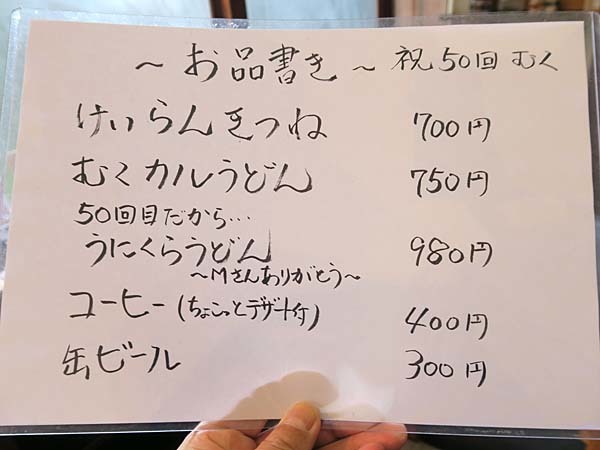 ～お品書き～ 祝50回 むく
けいらんきつね 700円
むくカルうどん 750円
50回目だから…
うにくらうどん 980円
～Mさんありがとう～
コーヒー(ちょこっとデザート付) 400円
缶ビール 300円